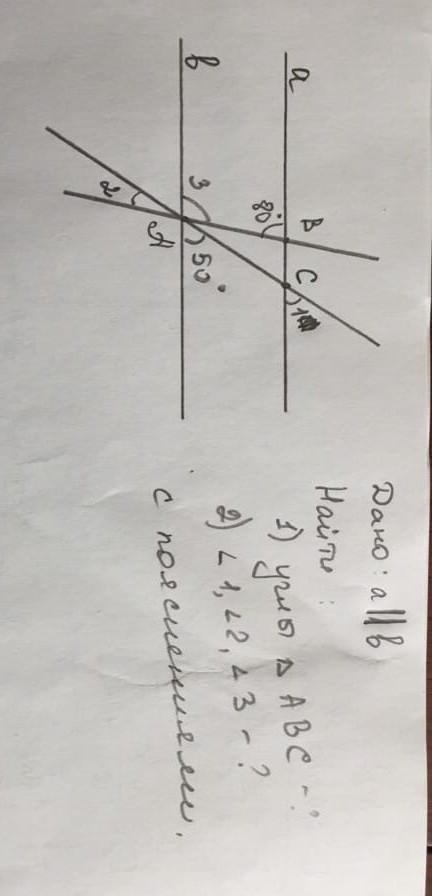 a
в
B
80°
C
1
3
A
50°
2
Дано: a || в
Найти:
1) углы △ ABC - ?
2) ∠1, ∠2, ∠3 - ?
с пояснениями.